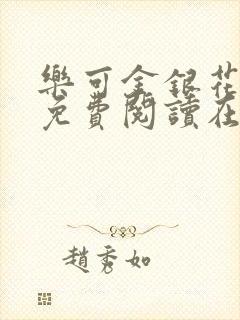 樂可金銀花
免費閱讀在
趙秀如